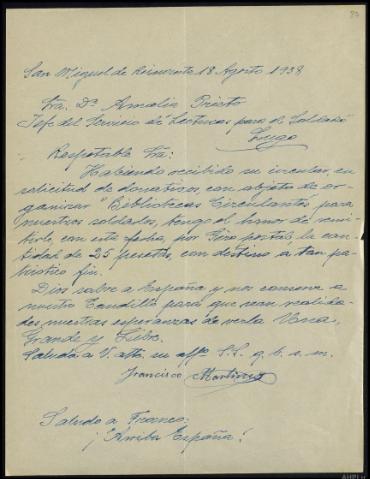 San Miguel de Reinante 18 Agosto 1938
Sra. Dª Amalia Prieto
Jefe del Servicio de "Lecturas para el Soldado"
Lugo
Respetable Sra:
Habiendo recibido su circular, en
solicitud de donativos, con objeto de or-
ganizar "Bibliotecas Circulantes" para
nuestros soldados, tengo el honor de remi-
tirle, con esta fecha, por Giro postal, la can-
tidad de 25 pesetas, con destino a tan pa-
triótico fin.
Dios salve a España y nos conserve a
nuestro Caudillo para que sean realida-
des nuestras esperanzas de verla Una,
Grande y Libre.
Saluda a V. atte. su affº S.S. q. b. s. m.
Francisco Martínez
Saludo a Franco:
¡Arriba España!